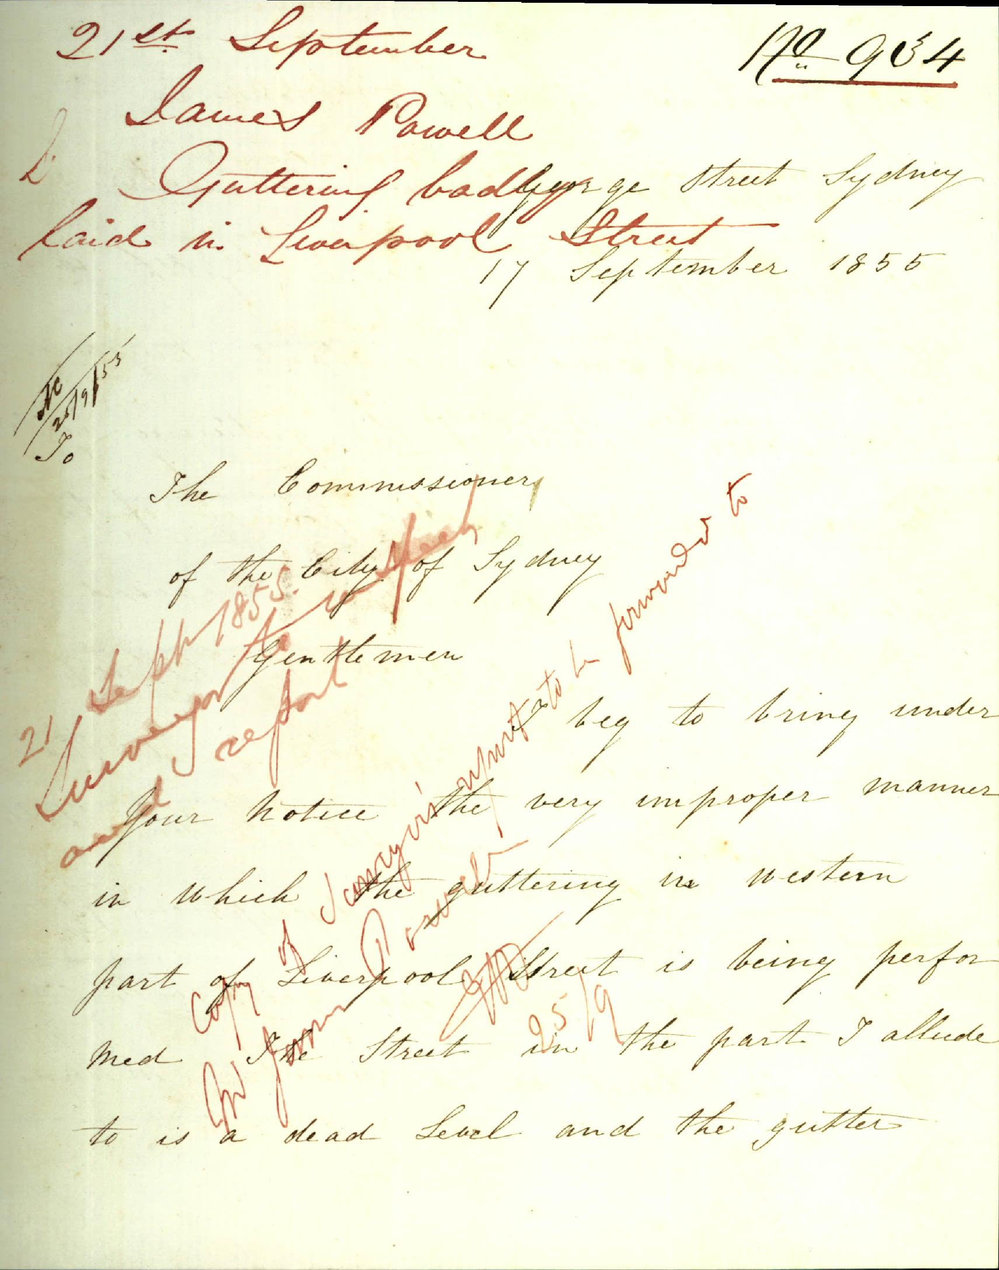 21st September
No 934
James Powell
Guttering badly
laid in Liverpool Street
George Street Sydney
17 September 1855
25/9/55
To
The Commissioners
of the City of Sydney
Gentlemen
I beg to bring under
Your Notice the very improper manner
in which the guttering in western
part of Liverpool Street is being perfor
med The Street in the part I allude
to is a dead Level and the gutter
21 Sept 1855.
Surveyor to inspect
and report
Copy of Surveyor's report to be forwarded to
Mr James Powell
25/9